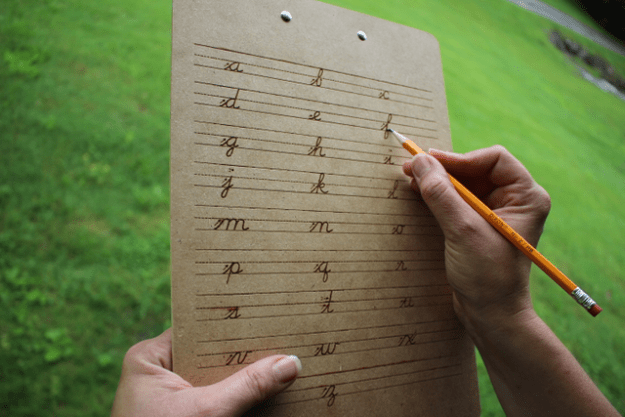 a b c
d e f
g h i
j k l
m n o
p q r
s t u
v w x
z